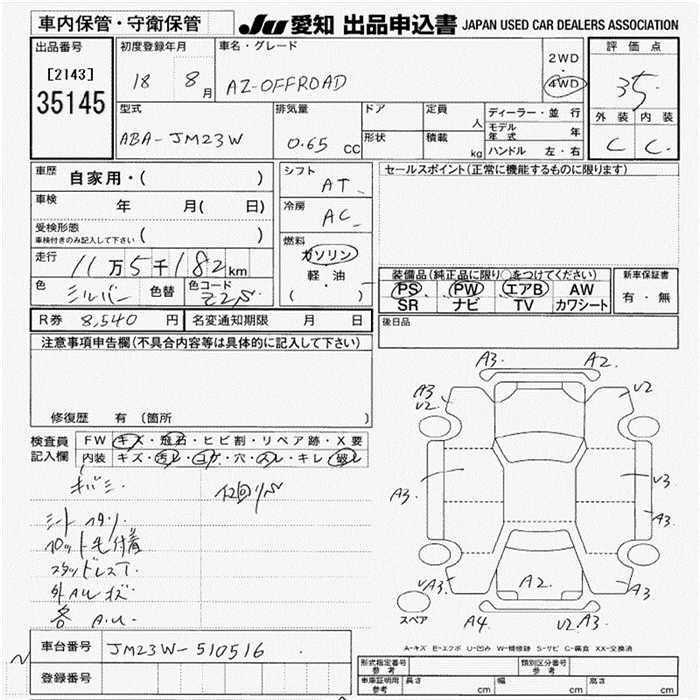 車内保管・守衛保管
JU 愛知 出品申込書 JAPAN USED CAR DEALERS ASSOCIATION
出品番号
[2143]
35145
初度登録年月
18 8月
車名・グレード
AZ-OFFROAD
2WD
・
4WD
評価点
3.5
外装 内装
C C
型式
ABA-JM23W
排気量
0.65 CC
ドア
形状
定員
人
積載
kg
ディーラー・並行
モデル年式 年
ハンドル 左・右
車歴 自家用・( )
車検 年 月( 日)
受検形態
車検付きのみ記入して下さい ( )
走行 11万5千182km
色 シルバー 色替 色コード Z2S
R券 8,540円 名変通知期限 月 日
シフト
AT
冷房
AC
燃料
ガソリン
・
軽・油
( )
セールスポイント(正常に機能するものに限ります)
装備品(純正品に限り○をつけてください)
PS PW エアB AW
SR ナビ TV カワシート
新車保証書
有・無
後日品
注意事項申告欄(不具合内容等は具体的に記入して下さい)
修復歴 有 (箇所 )
検査員記入欄
FW キズ・飛石・ヒビ割・リペア跡・X要
内装 キズ・汚レ・コゲ・穴・スレ・キレ・破レ
キバミ
シート スタリ
フロット毛付着
スタッドレスT
外AWキズ
各 A.U.
A3 A2
A3 U2
U2
A3
U3
A3
UA3
A2
A3
A4
U2 A3
スペア
A-キズ E-エクボ U-凹み W-補修跡 S-サビ C-腐食 XX-交換済
車台番号 JM23W-510516
登録番号
形式指定番号 参考
類別区分番号 参考
車庫証明用 参考 長さ cm 幅 cm 高さ cm